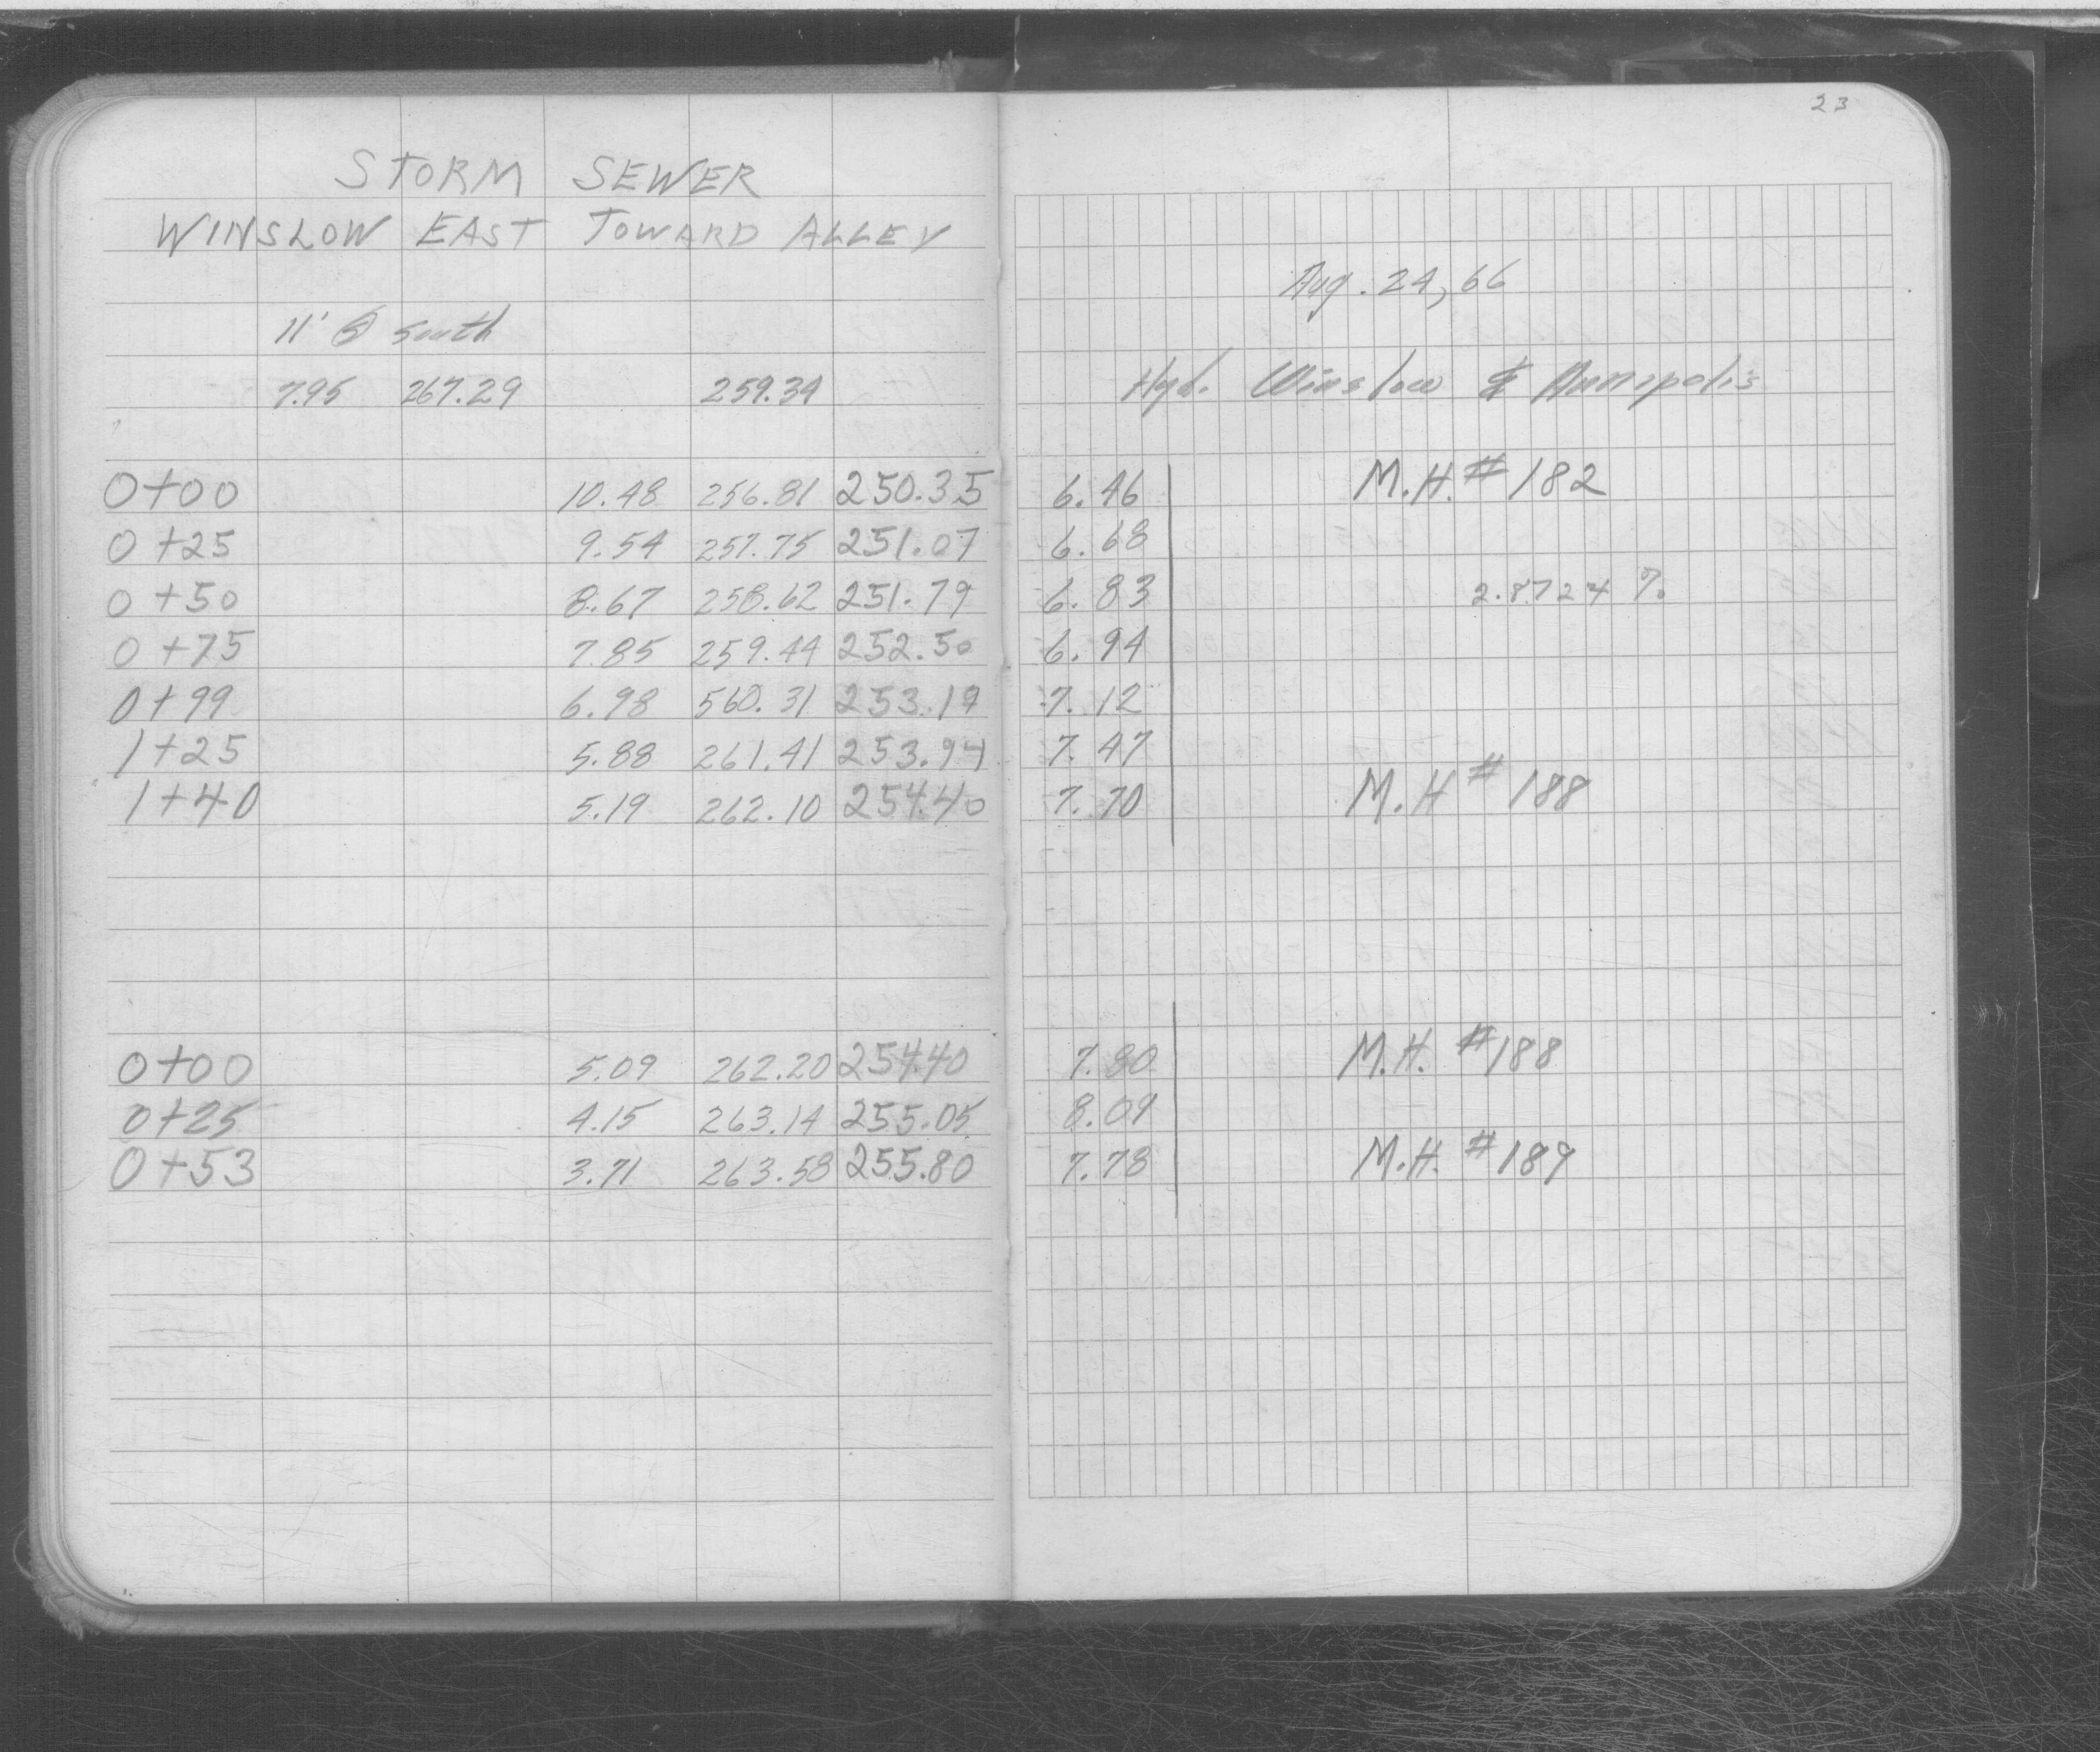 STORM SEWER
WINSLOW EAST TOWARD ALLEY
11' @ South
7.95 267.29 259.34
0+00 10.48 256.81 250.35
0+25 9.54 257.75 251.07
0+50 8.67 258.62 251.79
0+75 7.85 259.44 252.50
0+99 6.98 560.31 253.19
1+25 5.88 261.41 253.94
1+40 5.19 262.10 254.40
0+00 5.09 262.20 254.40
0+25 4.15 263.14 255.05
0+53 3.71 263.58 255.80
23
Aug. 24, 66
Hyd. Winslow & Annapolis
6.46 M.H. # 182
6.68
6.83 2.8724 %
6.94
7.12
7.47
7.70 M.H # 188
7.80 M.H. # 188
8.09
7.78 M.H. # 189